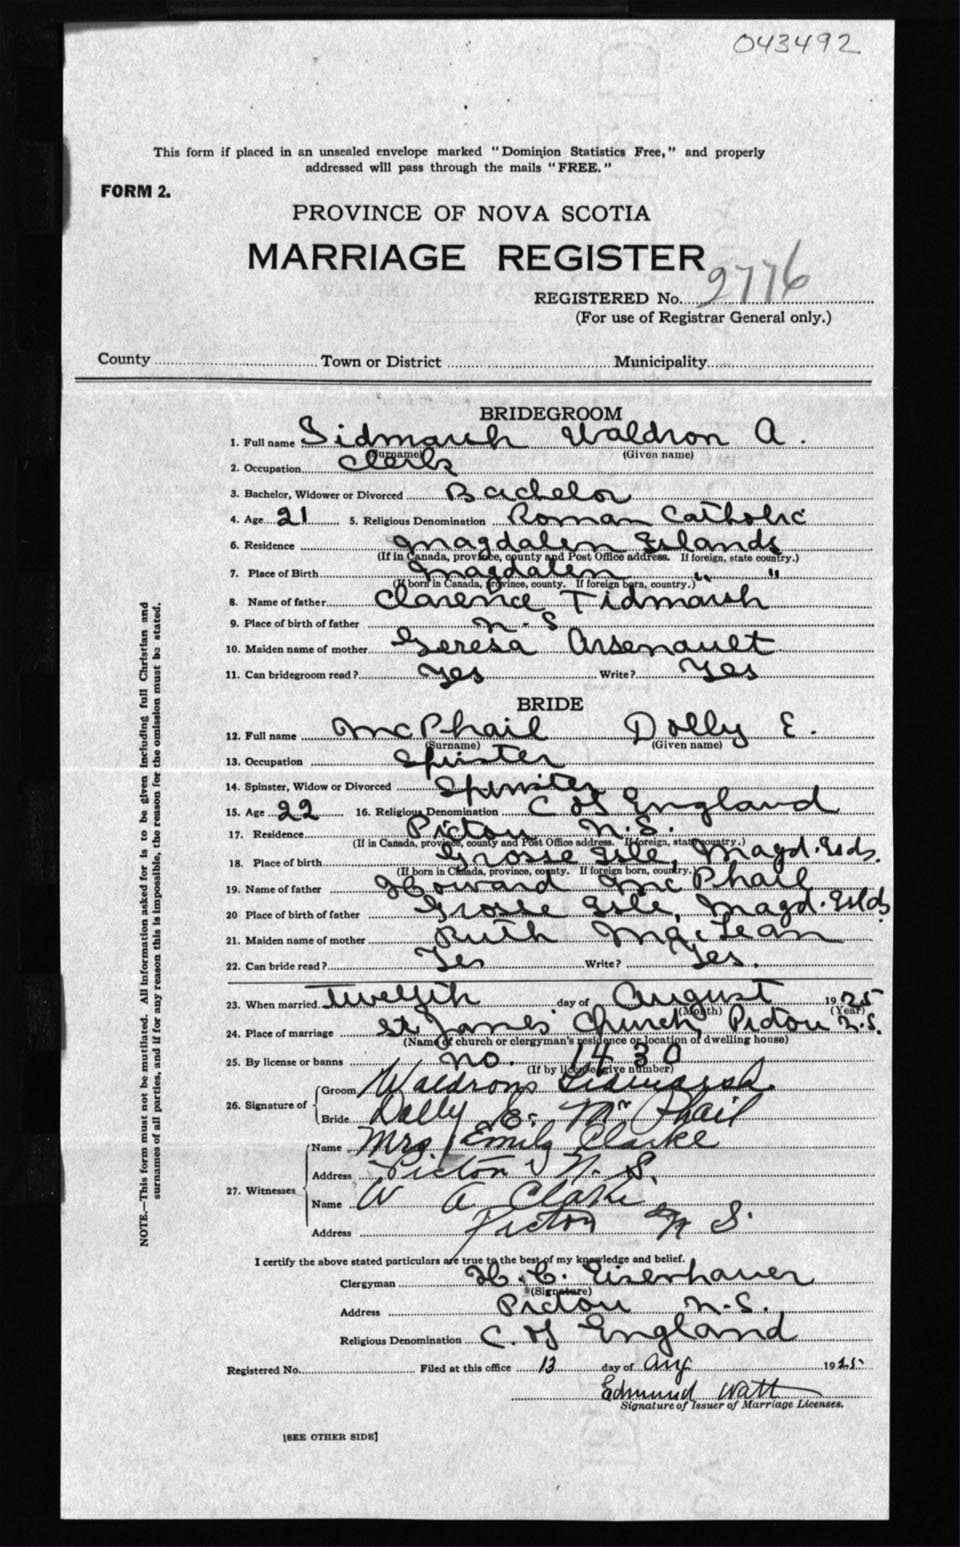 043492
This form if placed in an unsealed envelope marked "Dominion Statistics Free," and properly
addressed will pass through the mails "FREE."
FORM 2.
PROVINCE OF NOVA SCOTIA
MARRIAGE REGISTER
REGISTERED No. 2776
(For use of Registrar General only.)
County Town or District Municipality
BRIDEGROOM
1. Full name Tidmarsh Waldron A.
(Surname) (Given name)
2. Occupation Clerk
3. Bachelor, Widower or Divorced Bachelor
4. Age 21 5. Religious Denomination Roman Catholic
6. Residence Magdalen Islands
(If in Canada, province, county and Post Office address. If foreign, state country.)
7. Place of Birth Magdalen " "
(If born in Canada, province, county. If foreign born, country.)
8. Name of father Clarence Tidmarsh
9. Place of birth of father N. S
10. Maiden name of mother Teresa Arsenault
11. Can bridegroom read? Yes Write? Yes
BRIDE
12. Full name McPhail Dolly E.
(Surname) (Given name)
13. Occupation Spinster
14. Spinster, Widow or Divorced Spinster
15. Age 22 16. Religious Denomination C of England
17. Residence Pictou N.S.
(If in Canada, province, county and Post Office address. If foreign, state country.)
18. Place of birth Grosse Isle, Magd. Islds.
(If born in Canada, province, county. If foreign born, country.)
19. Name of father Howard McPhail
20 Place of birth of father Grosse Isle, Magd. Islds.
21. Maiden name of mother Ruth MacLean
22. Can bride read? Yes Write? Yes.
23. When married Twelfth day of August 1925
(Month) (Year)
24. Place of marriage St James Church, Pictou N.S.
(Name of church or clergyman's residence or location of dwelling house)
25. By license or banns No. 1430
(If by license give number)
26. Signature of Groom Waldron Tidmarsh
Bride Dolly E. McPhail
27. Witnesses Name Mrs. Emily Clarke
Address Pictou N. S.
Name W A Clarke
Address Pictou N S.
I certify the above stated particulars are true to the best of my knowledge and belief.
Clergyman H. C. Eisenhauer
(Signature)
Address Pictou N.S.
Religious Denomination C. of England
Registered No. Filed at this office 13 day of Aug 1925
Edmund Watt
Signature of Issuer of Marriage Licenses.
[SEE OTHER SIDE]
NOTE.—This form must not be mutilated. All information asked for is to be given including full Christian and
surnames of all parties, and if for any reason this is impossible, the reason for the omission must be stated.